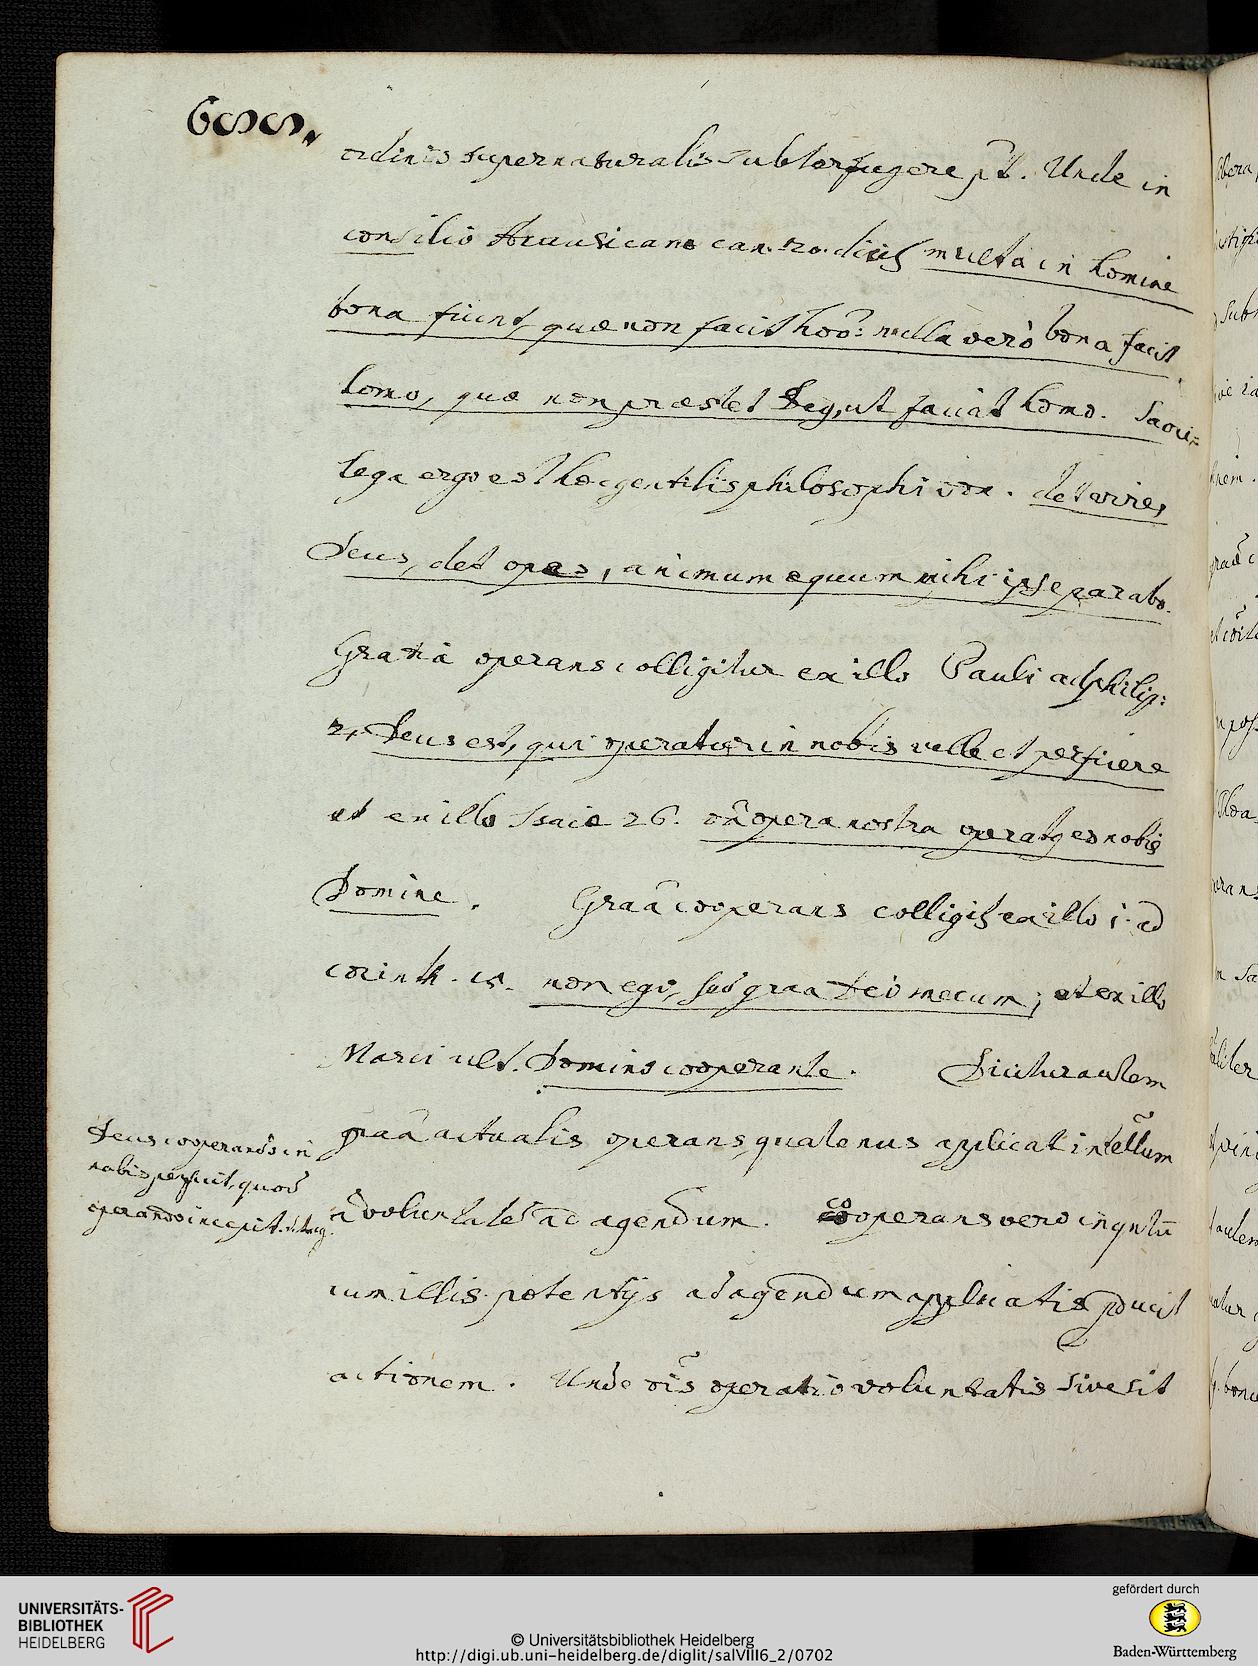 688.
ordinis supernaturalis subterfugere pt. Unde in
consilio Arausicano can. 20. dicit multa in homine
bona fiunt, quæ non facit hoo: nulla verò bona facit
homo, quæ non præstet Deg, ut faciat homo. Sacri=
lega ergo est hæc gentilis philosophi vox. det vires
Deus, det opes, animum equum mihi ipse parabo.
Gratia operans colligitur ex illo Pauli ad philip:
2. Deus est, qui operatur in nobis velle et perficere
et ex illo Isaiæ 26. oia opera nostra operatg es nobis
Domine. Graa cooperans colligit ex illo 1. ad
corinth. 15. non ego, sed graa Dei mecum; et ex illo
Marci ult. Domino cooperante. Dicitur autem
graa actualis operans, quatenus applicat intellum
ad voluntatem ad agendum. cooperans vero inqntu
cum illis potentijs ad agendum applicatis pducit
actionem. Unde ois operatio voluntatis sive sit
Deus cooperando in
nobis perficit, quod
operando incepit. s. Aug.
UNIVERSITÄTS-
BIBLIOTHEK
HEIDELBERG
© Universitätsbibliothek Heidelberg
http://digi.ub.uni-heidelberg.de/diglit/salVIII6_2/0702
gefördert durch
Baden-Württemberg